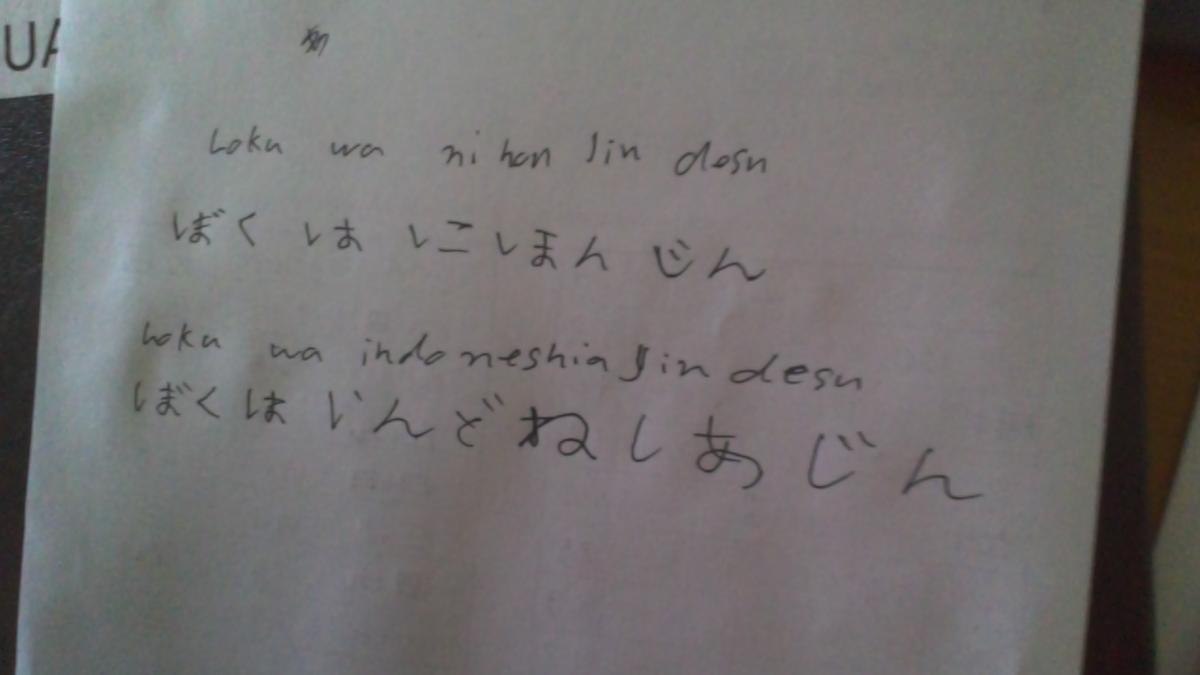 UA
boku wa nihon Jin desu
ぼく は にほん じん
boku wa indoneshia Jin desu
ぼくは いんどねしあ じん